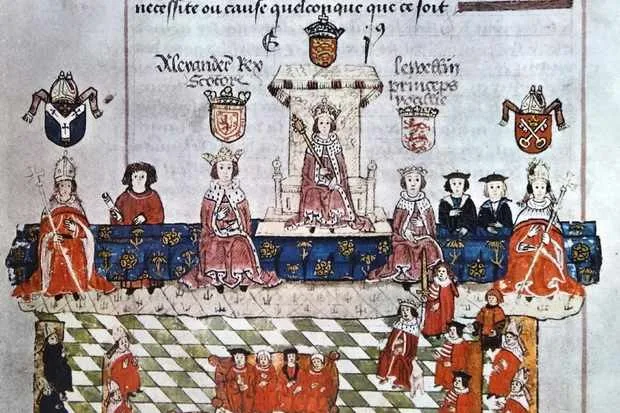 necessite ou cause quelconque que ce soit
E j9
Alexander Rex
Scotore
lewellin
princeps
wallie